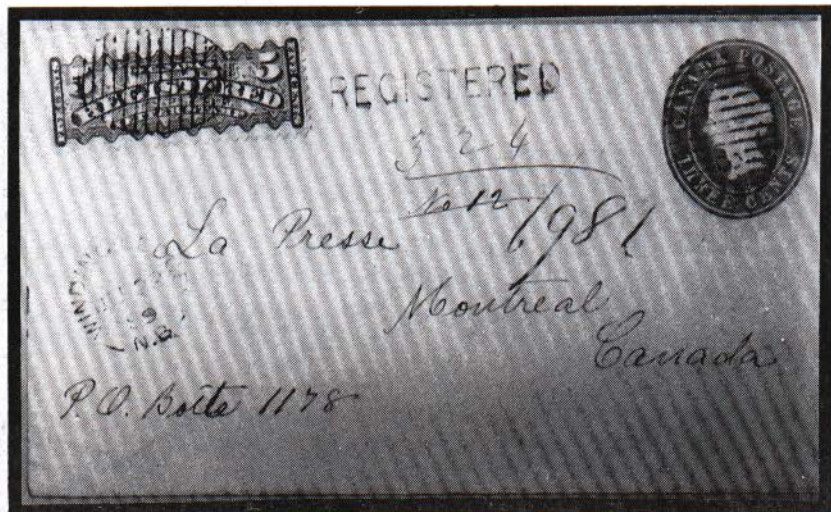 5 5
REGISTERED
REGISTERED
CANADA POSTAGE
THREE CENTS
3 2 4
No 12
1981
La Presse
Montreal
Canada
N.B.
P.O. Boite 1178